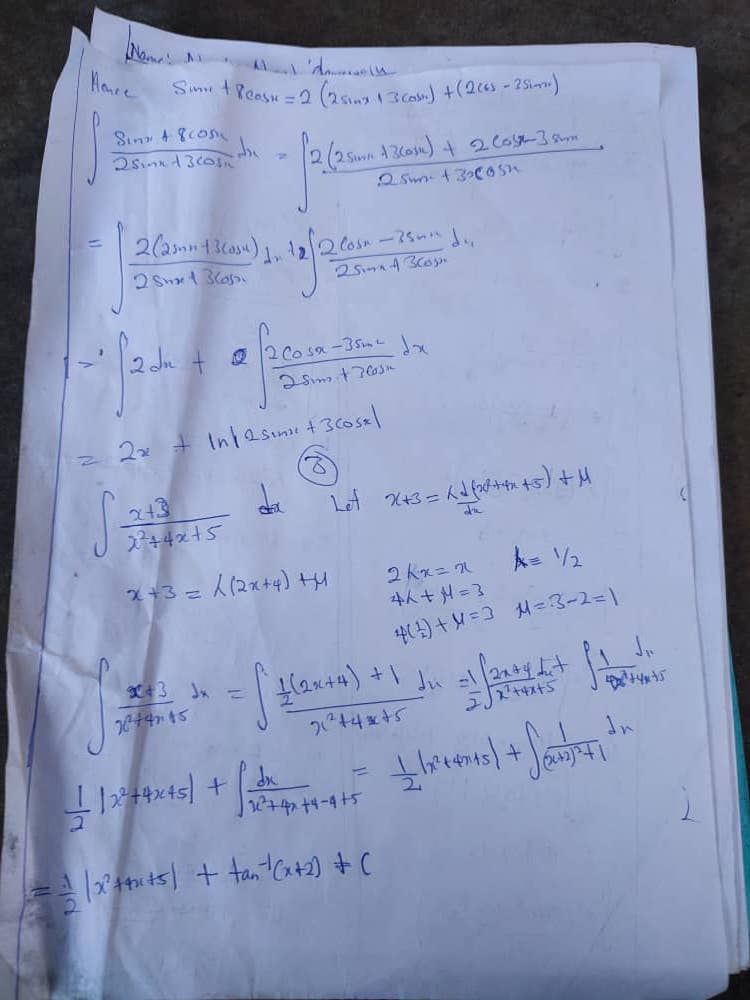 Name:
Hence Sinx + 8cosx = 2 (2sinx + 3cosx) + (2cos - 3sinx)
∫ (Sinx + 8cosx)/(2sinx + 3cosx) dx = ∫ (2(2sinx + 3cosx) + 2cosx - 3sinx)/(2sinx + 3cosx)
= ∫ 2(2sinx + 3cosx)/(2sinx + 3cosx) dx + ∫ (2cosx - 3sinx)/(2sinx + 3cosx) dx
= ∫ 2dx + ∫ (2cosx - 3sinx)/(2sinx + 3cosx) dx
= 2x + ln|2sinx + 3cosx|
∫ (x+3)/(x²+4x+5) dx Let x+3 = λ d/dx (x²+4x+5) + μ
x+3 = λ(2x+4) + μ 2λx = x λ = 1/2
4λ + μ = 3
4(1/2) + μ = 3 μ = 3-2 = 1
∫ (x+3)/(x²+4x+5) dx = ∫ (1/2(2x+4) + 1)/(x²+4x+5) dx = 1/2 ∫ (2x+4)/(x²+4x+5) dx + ∫ 1/(x²+4x+5) dx
1/2 |x²+4x+5| + ∫ dx/(x²+4x+4-4+5) = 1/2 |x²+4x+5| + ∫ 1/((x+2)²+1) dx
= 1/2 |x²+4x+5| + tan⁻¹(x+2) + C